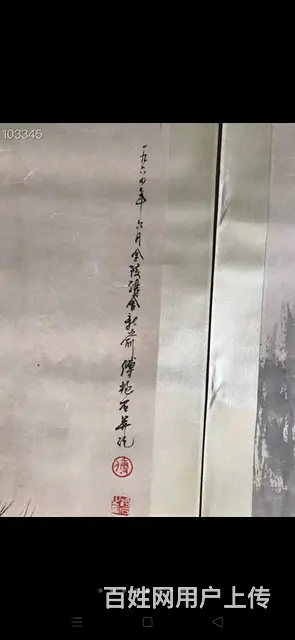 103345
一九六四年六月金陵 新前 傅抱石并记
傅
百姓网用户上传